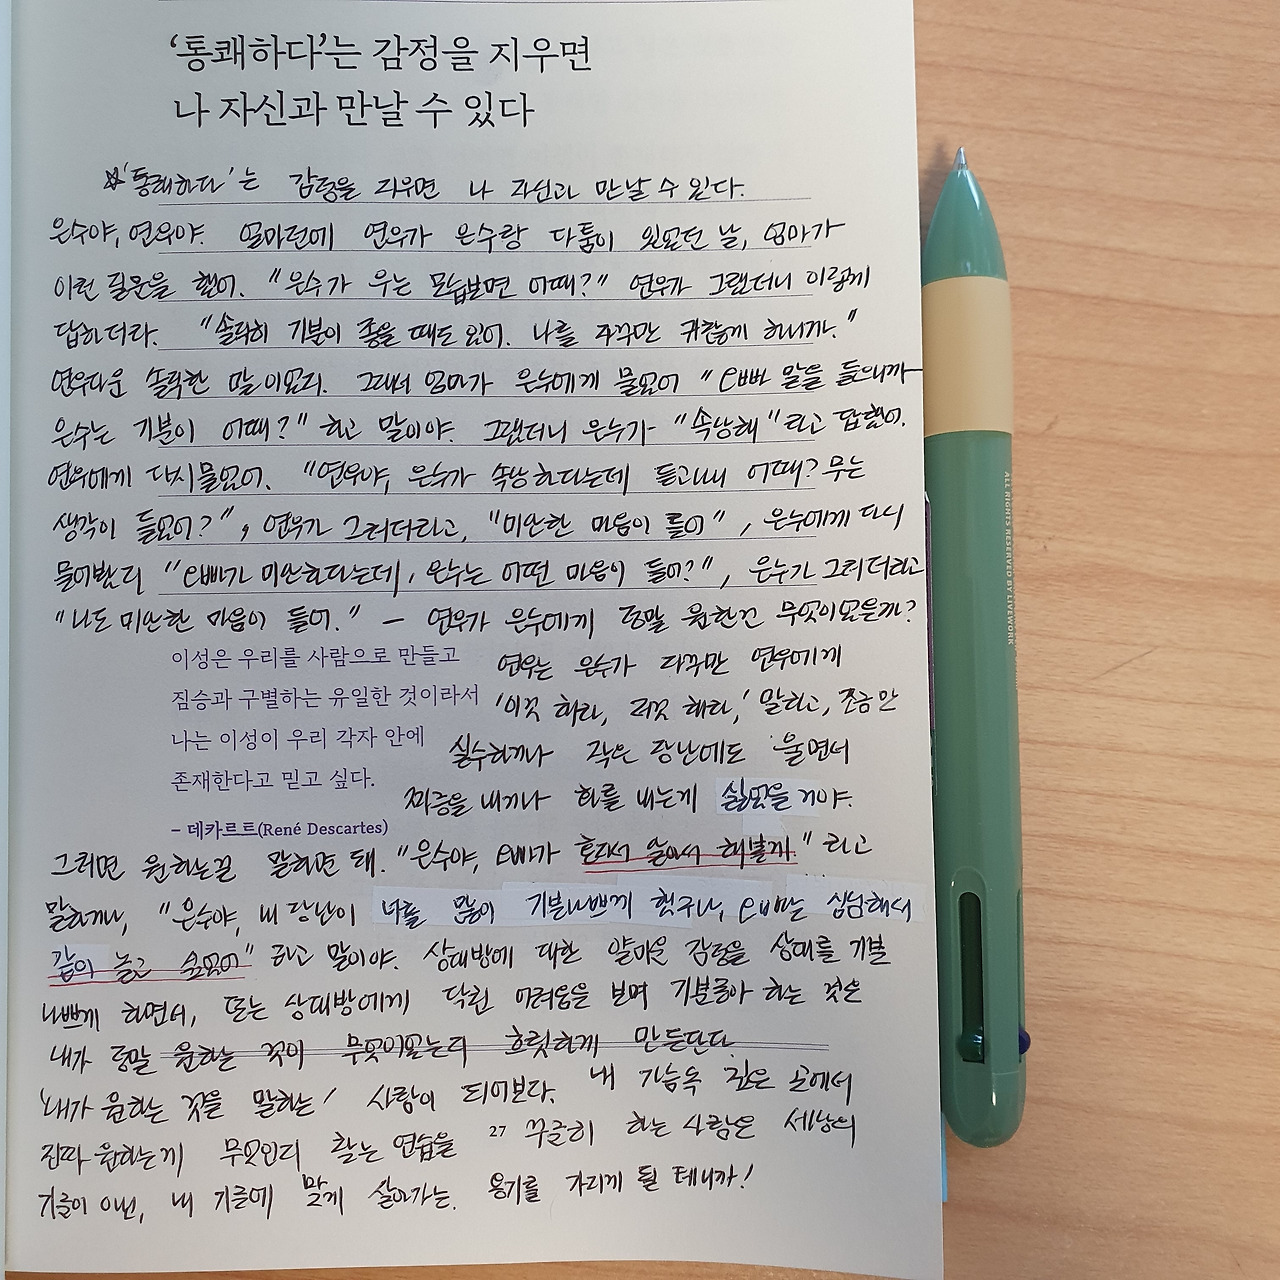 ‘통쾌하다’는 감정을 지우면
나 자신과 만날 수 있다
☆'통쾌하다'는 감정을 지우면 나 자신과 만날 수 있다.
은수야, 연우야. 얼마전에 연우가 은수랑 다툼이 있었던 날, 엄마가
이런 질문을 했어. "은수가 우는 모습보면 어때?" 연우가 그랬더니 이렇게
답하더라. "솔직히 기분이 좋을 때도 있어. 나를 자꾸만 귀찮게 하니까."
연우다운 솔직한 말이었지. 그래서 엄마가 은수에게 물었어 "오빠 말을 들으니까
은수는 기분이 어때?" 하고 말이야. 그랬더니 은수가 "속상해"라고 답했어.
연우에게 다시 물었어. "연우야, 은수가 속상하다는데 듣고나니 어때? 무슨
생각이 들었어?", 연우가 그러더라고, "미안한 마음이 들어", 은수에게 다시
물어봤지 "오빠가 미안하다는데, 은수는 어떤 마음이 들어?", 은수가 그러더라고
"나도 미안한 마음이 들어." — 연우가 은수에게 정말 원한건 무엇이었을까?
이성은 우리를 사람으로 만들고
짐승과 구별하는 유일한 것이라서
나는 이성이 우리 각자 안에
존재한다고 믿고 싶다.
– 데카르트(René Descartes)
연우는 은수가 자꾸만 연우에게
'이것 해라, 저것 해라,' 말하고, 조금만
실수하거나 작은 장난에도 울면서
짜증을 내거나 화를 내는게 싫었을거야.
그러면 원하는걸 말하면 돼. "은수야, 오빠가 혼자서 알아서 해볼게." 라고
말하거나, "은수야, 내 장난이 너를 많이 기분나쁘게 했구나, 오빠는 심심해서
같이 놀고 싶었어" 라고 말이야. 상대방에 대한 얄미운 감정을 상대를 기분
나쁘게 하면서, 또는 상대방에게 닥친 어려움을 보며 기분좋아 하는 것은
내가 정말 원하는 것이 무엇이었는지 흐릿하게 만든단다.
'내가 원하는 것을 말하는' 사람이 되어보자. 내 가슴속 깊은 곳에서
진짜 원하는게 무엇인지 찾는 연습을 꾸준히 하는 사람은 세상의
기준이 아닌, 내 기준에 맞게 살아가는. 용기를 가지게 될 테니까!
27
ALL RIGHTS RESERVED BY LIVEWORK